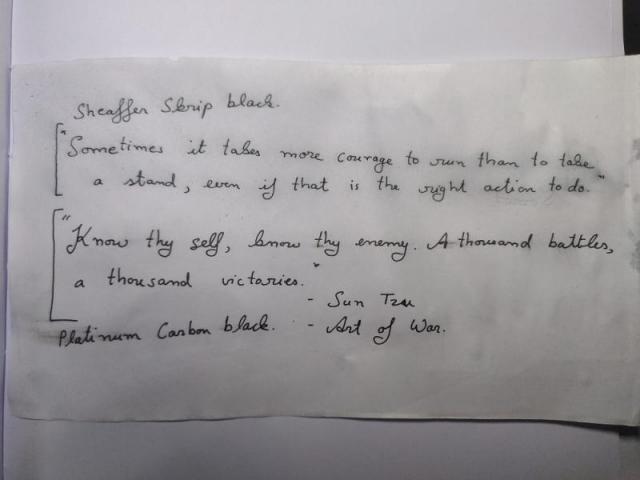 Sheaffer Skrip black.
"Sometimes it takes more courage to run than to take
a stand, even if that is the right action to do."
"Know thy self, know thy enemy. A thousand battles,
a thousand victaries."
- Sun Tzu
Platinum Carbon black. - Art of War.